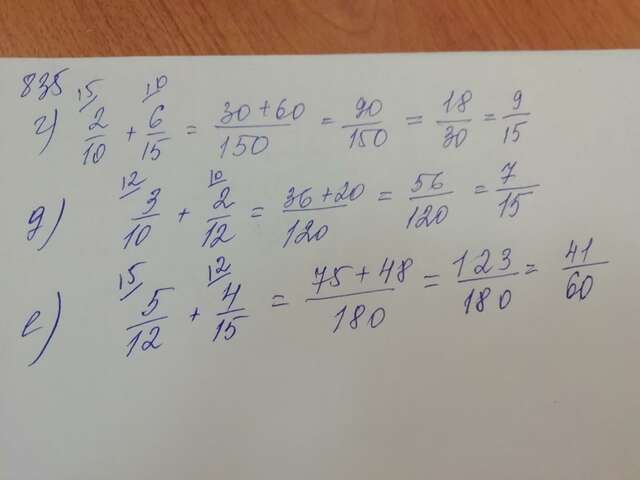 835
г) 15/ 2/10 + 10/ 6/15 = (30+60)/150 = 90/150 = 18/30 = 9/15
д) 12/ 3/10 + 10/ 2/12 = (36+20)/120 = 56/120 = 7/15
е) 15/ 5/12 + 12/ 4/15 = (75+48)/180 = 123/180 = 41/60